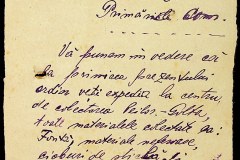 Primăriile Com.
Vă punem în vedere că
la primirea prezentului
ordin veți expedia la centru
de colectarea
toate materialele colectate ca:
Fontă, materiale neferoase,
cioburi de sticlă